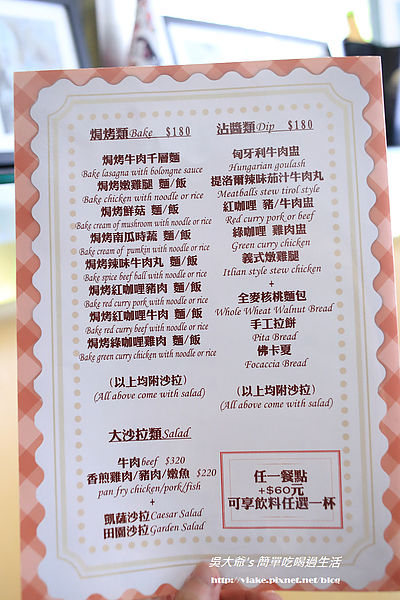 焗烤類Bake $180
焗烤牛肉千層麵
Bake lasagna with bolongne sauce
焗烤嫩雞腿 麵/飯
Bake chicken with noodle or rice
焗烤鮮菇 麵/飯
Bake cream of mushroom with noodle or rice
焗烤南瓜時蔬 麵/飯
Bake cream of pumkin with noodle or rice
焗烤辣味牛肉丸 麵/飯
Bake spice beef ball with noodle or rice
焗烤紅咖哩豬肉 麵/飯
Bake red curry pork with noodle or rice
焗烤紅咖哩牛肉 麵/飯
Bake red curry beef with noodle or rice
焗烤綠咖哩雞肉 麵/飯
Bake green curry chicken with noodle or rice
(以上均附沙拉)
(All above come with salad)
大沙拉類Salad
牛肉beef $320
香煎雞肉/豬肉/嫩魚 $220
pan fry chicken/pork/fish
+
凱薩沙拉Caesar Salad
田園沙拉Garden Salad
沾醬類Dip $180
匈牙利牛肉盅
Hungarian goulash
提洛爾辣味茄汁牛肉丸
Meatballs stew tirol style
紅咖哩 豬/牛肉盅
Red curry pork or beef
綠咖哩 雞肉盅
Green curry chicken
義式燉雞腿
Itlian style stew chicken
+
全麥核桃麵包
Whole Wheat Walnut Bread
手工拉餅
Pita Bread
佛卡夏
Focaccia Bread
(以上均附沙拉)
(All above come with salad)
任一餐點
+$60元
可享飲料任選一杯
吳大爺's 簡單吃喝過生活
http://viake.pixnet.net/blog